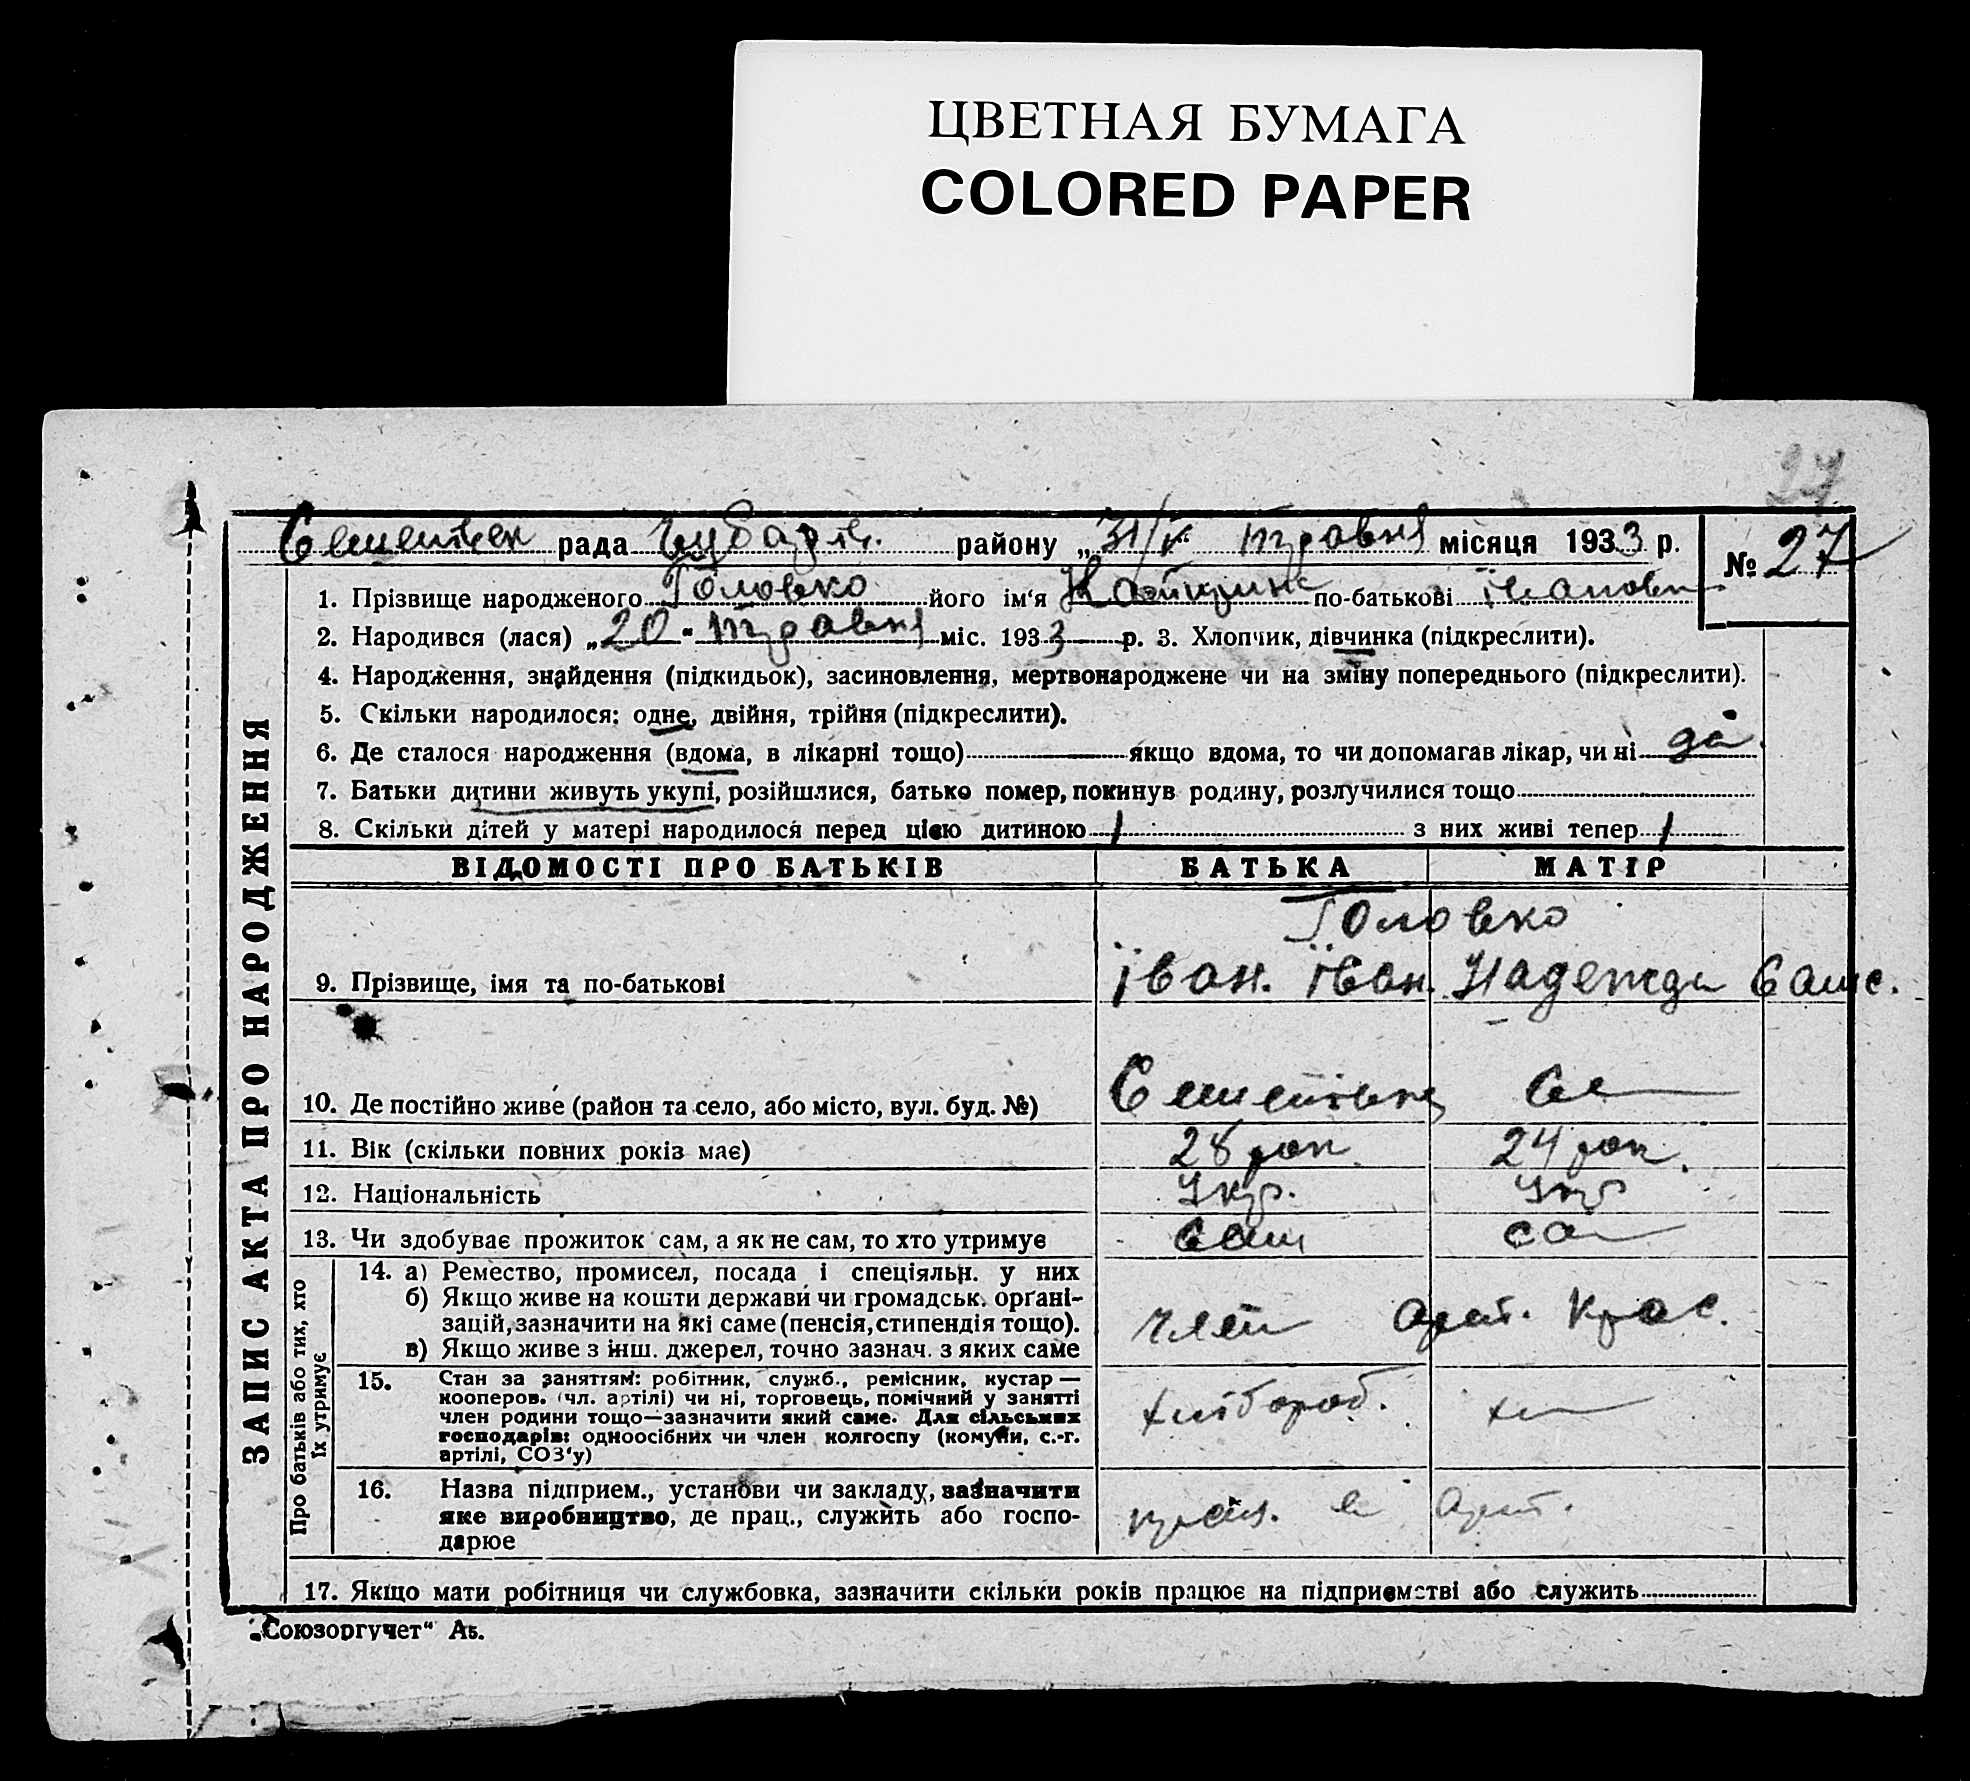 ЦВЕТНАЯ БУМАГА
COLORED PAPER
27
рада Чубарів. району „31/V травня місяця 1933 р. № 27
1. Прізвище народженого Головко його ім‘я по-батькові Івановн
2. Народився (лася) „20“ травня міс. 1933 р. 3. Хлопчик, дівчинка (підкреслити).
4. Народження, знайдення (підкидьок), засиновлення, мертвонароджене чи на зміну попереднього (підкреслити).
5. Скільки народилося: одне, двійня, трійня (підкреслити).
6. Де сталося народження (вдома, в лікарні тощо) якщо вдома, то чи допомагав лікар, чи ні да.
7. Батьки дитини живуть укупі, розійшлися, батько помер, покинув родину, розлучилися тощо
8. Скільки дітей у матері народилося перед цією дитиною 1 з них живі тепер 1
ЗАПИС АКТА ПРО НАРОДЖЕННЯ
ВІДОМОСТІ ПРО БАТЬКІВ БАТЬКА МАТІР
Головко
9. Прізвище, імя та по-батькові Іван. Іван. Надежда
10. Де постійно живе (район та село, або місто, вул. буд. №) Се
11. Вік (скільки повних років має) 28 рок. 24 рок.
12. Національність Укр. Укр
13. Чи здобуває прожиток сам, а як не сам, то хто утримує сам са
Про батьків або тих, хто їх утримує
14. а) Ремество, промисел, посада і спеціяльн. у них
б) Якщо живе на кошти держави чи громадськ. органі-
зацій, зазначити на які саме (пенсія, стипендія тощо).
в) Якщо живе з інш. джерел, точно зазнач. з яких саме
член арт. Крас.
15. Стан за заняттям: робітник, служб., ремісник, кустар —
кооперов. (чл. артілі) чи ні, торговець, помічний у занятті
член родини тощо—зазначити який саме. Для сільських
господарів: одноосібних чи член колгоспу (комуни, с.-г.
артілі, СОЗ‘у)
хлібороб. хл
16. Назва підприєм., установи чи закладу, зазначити
яке виробництво, де прац., служить або госпо-
дарює
в арт.
17. Якщо мати робітниця чи службовка, зазначити скільки років працює на підприємстві або служить
„Союзоргучет“ Аб.